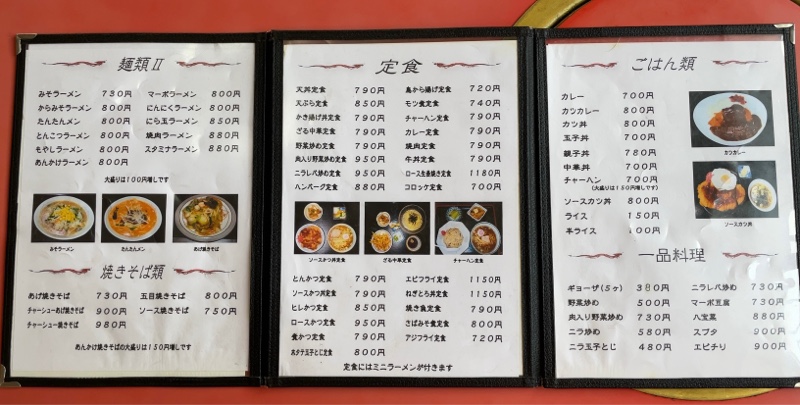 麺類Ⅱ
みそラーメン 730円 マーボラーメン 800円
からみそラーメン 800円 にんにくラーメン 800円
たんたんメン 800円 にら玉ラーメン 850円
とんこつラーメン 800円 焼肉ラーメン 880円
もやしラーメン 800円 スタミナラーメン 880円
あんかけラーメン 800円
大盛りは100円増しです
みそラーメン たんたんメン あげ焼きそば
焼きそば類
あげ焼きそば 730円 五目焼きそば 800円
チャーシューあげ焼きそば 900円 ソース焼きそば 750円
チャーシュー焼きそば 980円
あんかけ焼きそばの大盛りは150円増しです
定食
天丼定食 790円 鳥から揚げ定食 720円
天ぷら定食 850円 モツ煮定食 740円
かき揚げ丼定食 790円 チャーハン定食 790円
ざる中華定食 790円 カレー定食 790円
野菜炒め定食 790円 焼肉定食 790円
肉入り野菜炒め定食 950円 牛丼定食 790円
ニラレバ炒め定食 950円 ロース生姜焼き定食 1180円
ハンバーグ定食 880円 コロッケ定食 700円
ソースかつ丼定食 ざる中華定食 チャーハン定食
とんかつ定食 790円 エビフライ定食 1150円
ソースかつ丼定食 790円 ねぎとろ丼定食 1150円
ヒレかつ定食 850円 焼き魚定食 790円
ロースかつ定食 950円 さばみそ煮定食 800円
食かつ定食 790円 アジフライ定食 720円
ホタテ玉子とじ定食 800円
定食にはミニラーメンが付きます
ごはん類
カレー 700円
カツカレー 800円
カツ丼 800円
玉子丼 700円
親子丼 780円
中華丼 700円
チャーハン 700円
(大盛りは150円増しです)
ソースカツ丼 800円
ライス 150円
半ライス 100円
カツカレー
ソースカツ丼
一品料理
ギョーザ(5ヶ) 380円 ニラレバ炒め 730円
野菜炒め 500円 マーボ豆腐 730円
肉入り野菜炒め 730円 八宝菜 880円
ニラ炒め 580円 スブタ 900円
ニラ玉子とじ 480円 エビチリ 900円